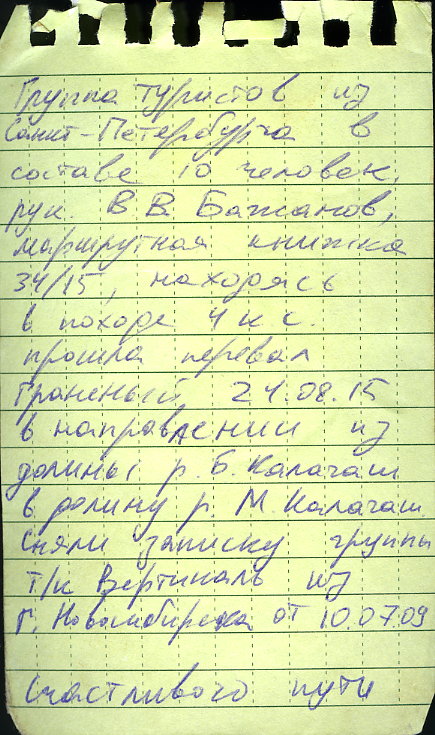 Группа туристов из
Санкт-Петербурга в
составе 10 человек,
рук. В.В. Бажанов,
маршрутная книжка
34/15, находясь
в походе 4 к с.
прошла перевал
Граненый 24.08.15
в направлении из
долины р. Б. Калагаш
в долину р. М. Калагаш
Сняли записку группы
т/к Вертикаль из
г. Новосибирска от 10.07.09
Счастливого пути